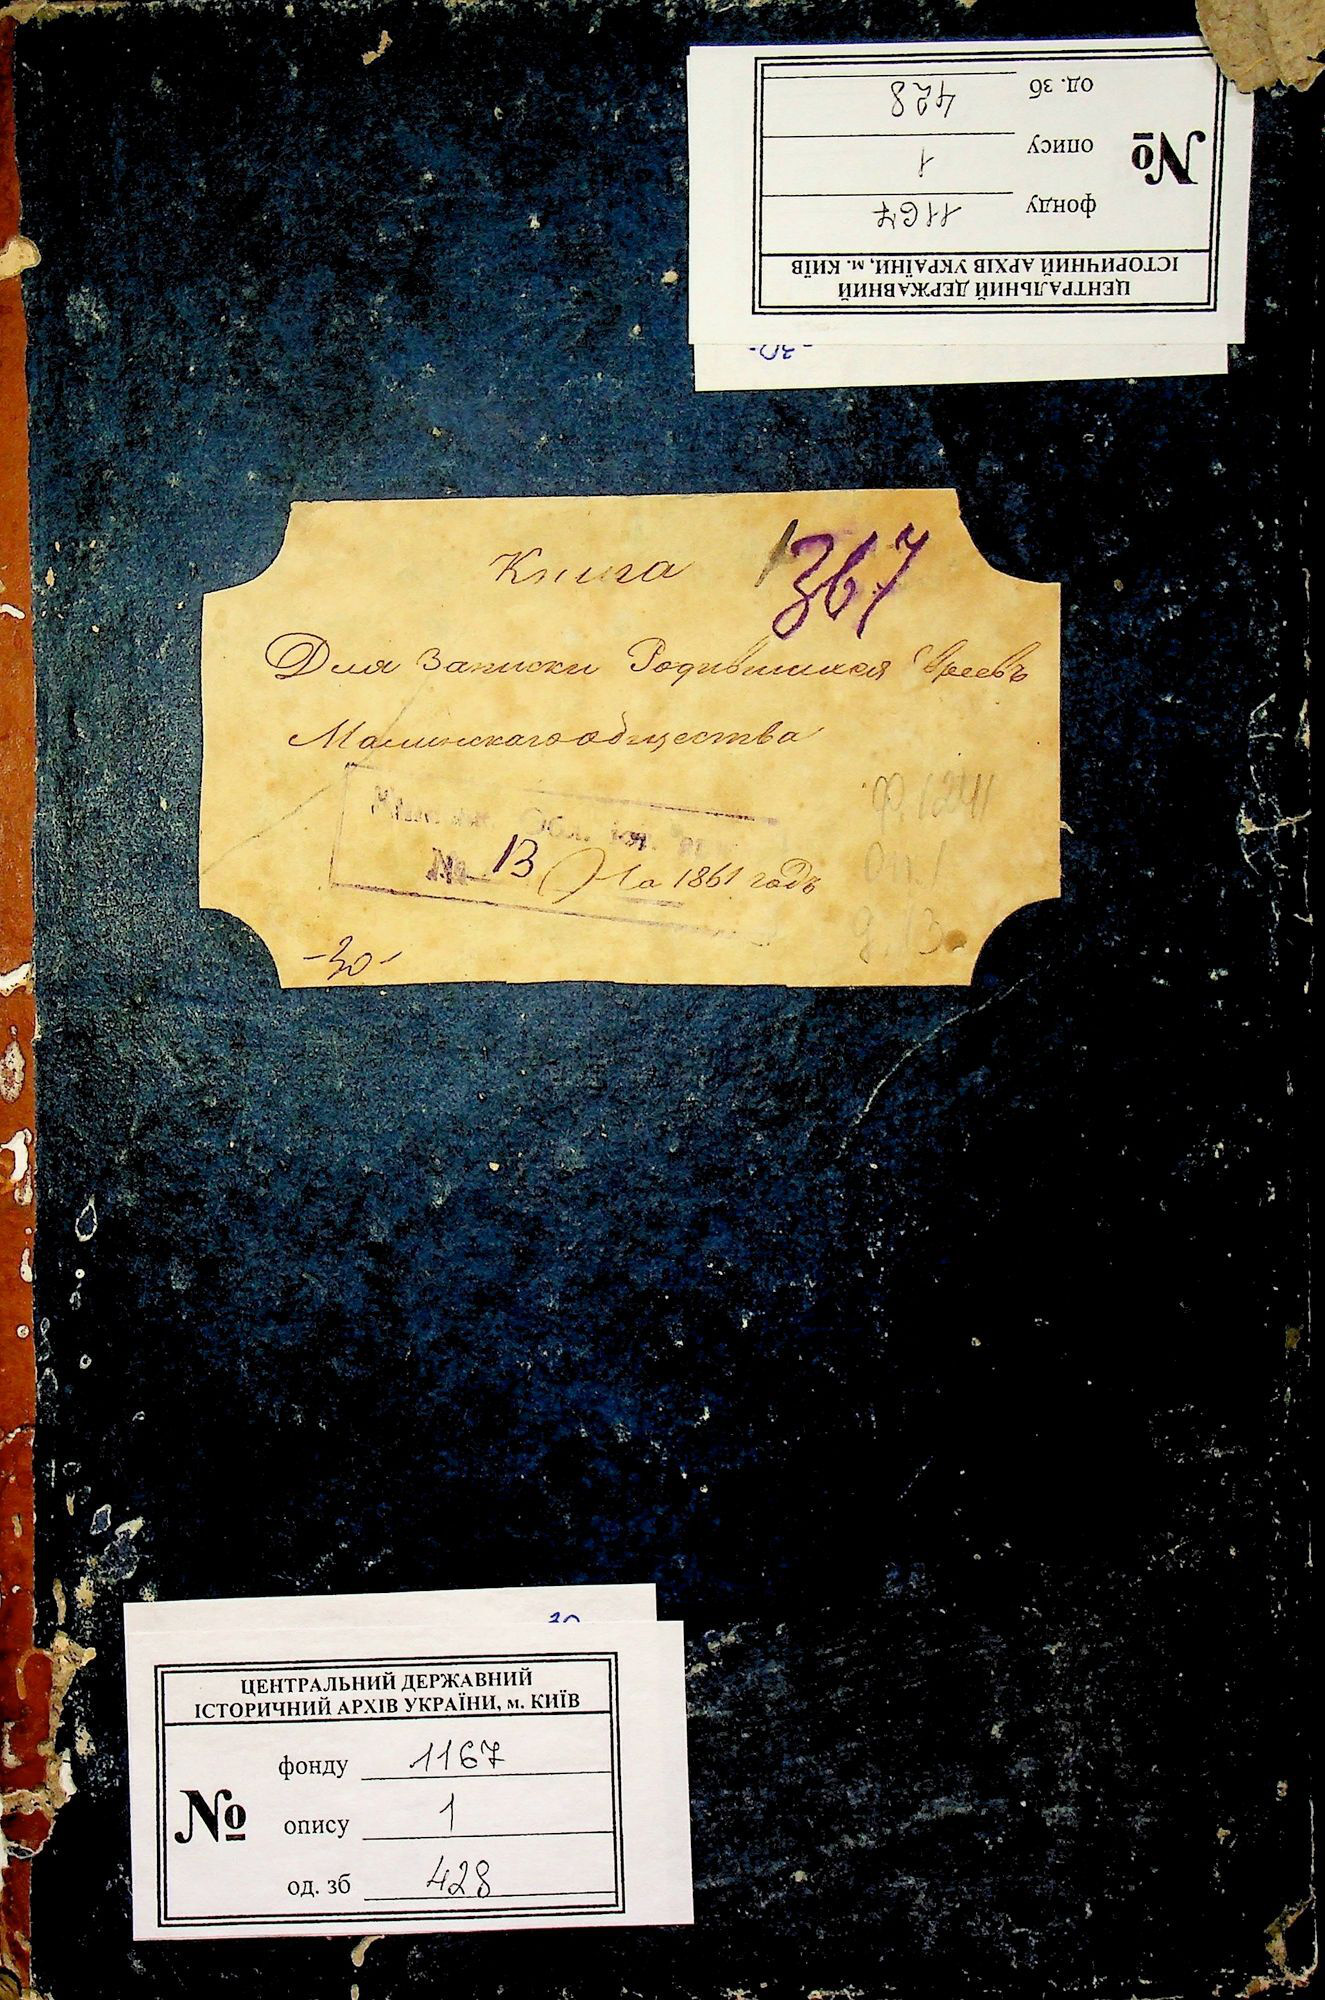 ЦЕНТРАЛЬНИЙ ДЕРЖАВНИЙ
ІСТОРИЧНИЙ АРХІВ УКРАЇНИ, м. КИЇВ
№
фонду 1167
опису 1
од. зб 428
-30-
Книга
1367
Для Записки Родившихся Евреевъ
Малинскаго общества
ф. 1241
№ 13
оп. 1
На 1861 годъ
д. 13
-30-
30
ЦЕНТРАЛЬНИЙ ДЕРЖАВНИЙ
ІСТОРИЧНИЙ АРХІВ УКРАЇНИ, м. КИЇВ
№
фонду 1167
опису 1
од. зб 428